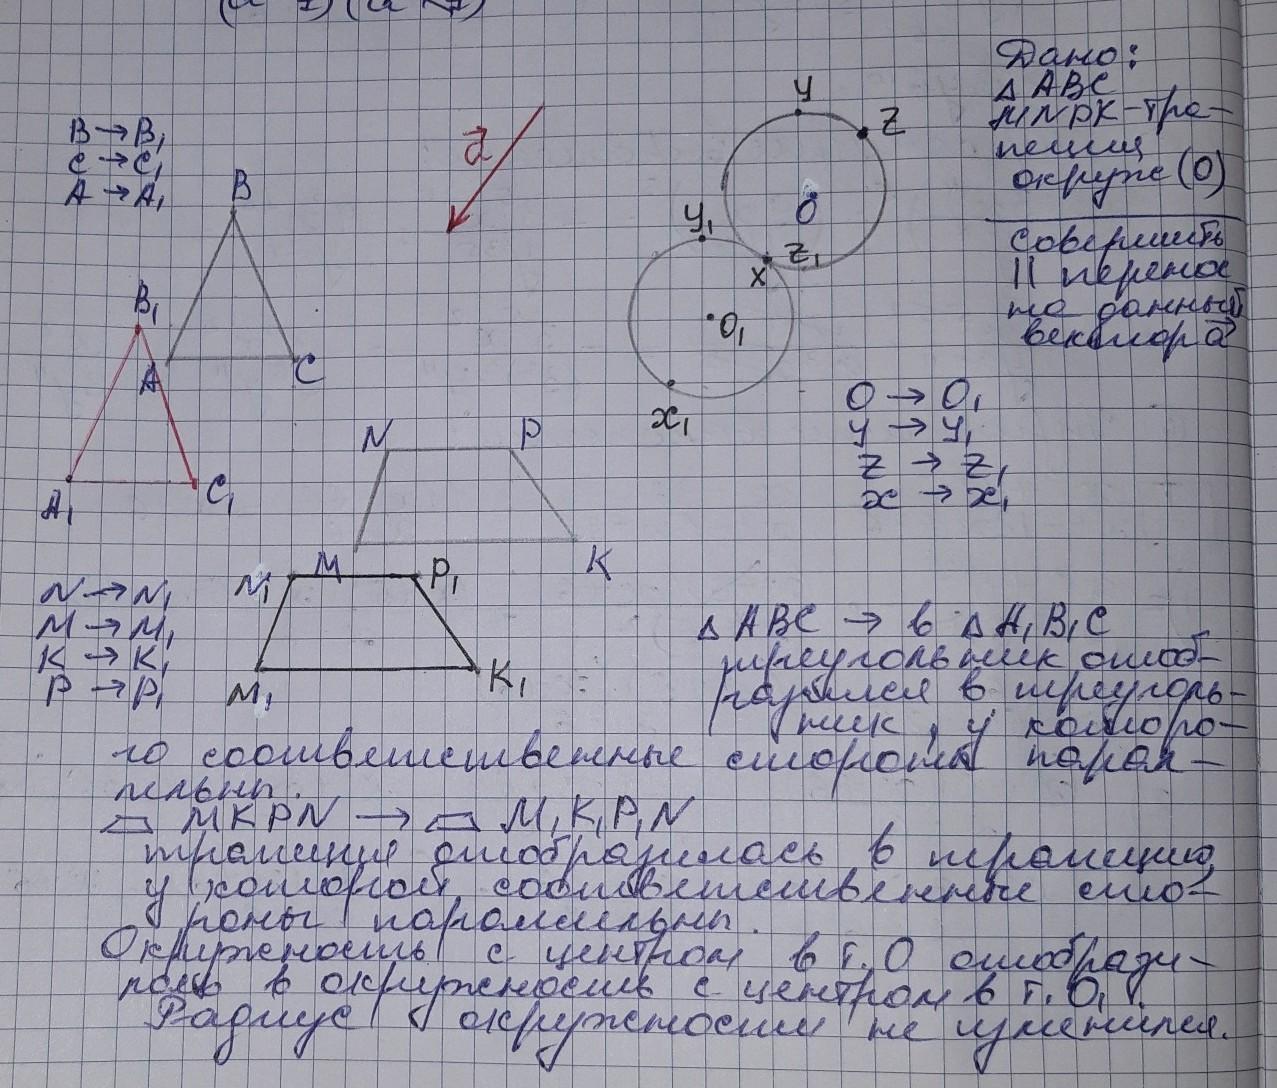 B → B₁
C → C₁
A → A₁
B
A
C
B₁
A₁
C₁
a
y
z
O
y₁
x z₁
O₁
x₁
Дано:
△ ABC
MNPK-тра-
пеция
окруж (O)
совершить
|| перенос
на данный
вектор a
O → O₁
y → y₁
z → z₁
x → x₁
N
P
M
K
N₁
P₁
M₁
K₁
N → N₁
M → M₁
K → K₁
P → P₁
△ ABC → в △ A₁B₁C
треугольник отоб-
разился в треуголь-
ник, у которо-
го соответственные стороны парал-
лельны.
MKPN → M₁K₁P₁N
трапеция отобразилась в трапецию,
у которой соответственные сто-
роны параллельны.
Окружность с центром в т. O отобрази-
лась в окружность с центром в т. O₁.
Радиус окружности не изменился.